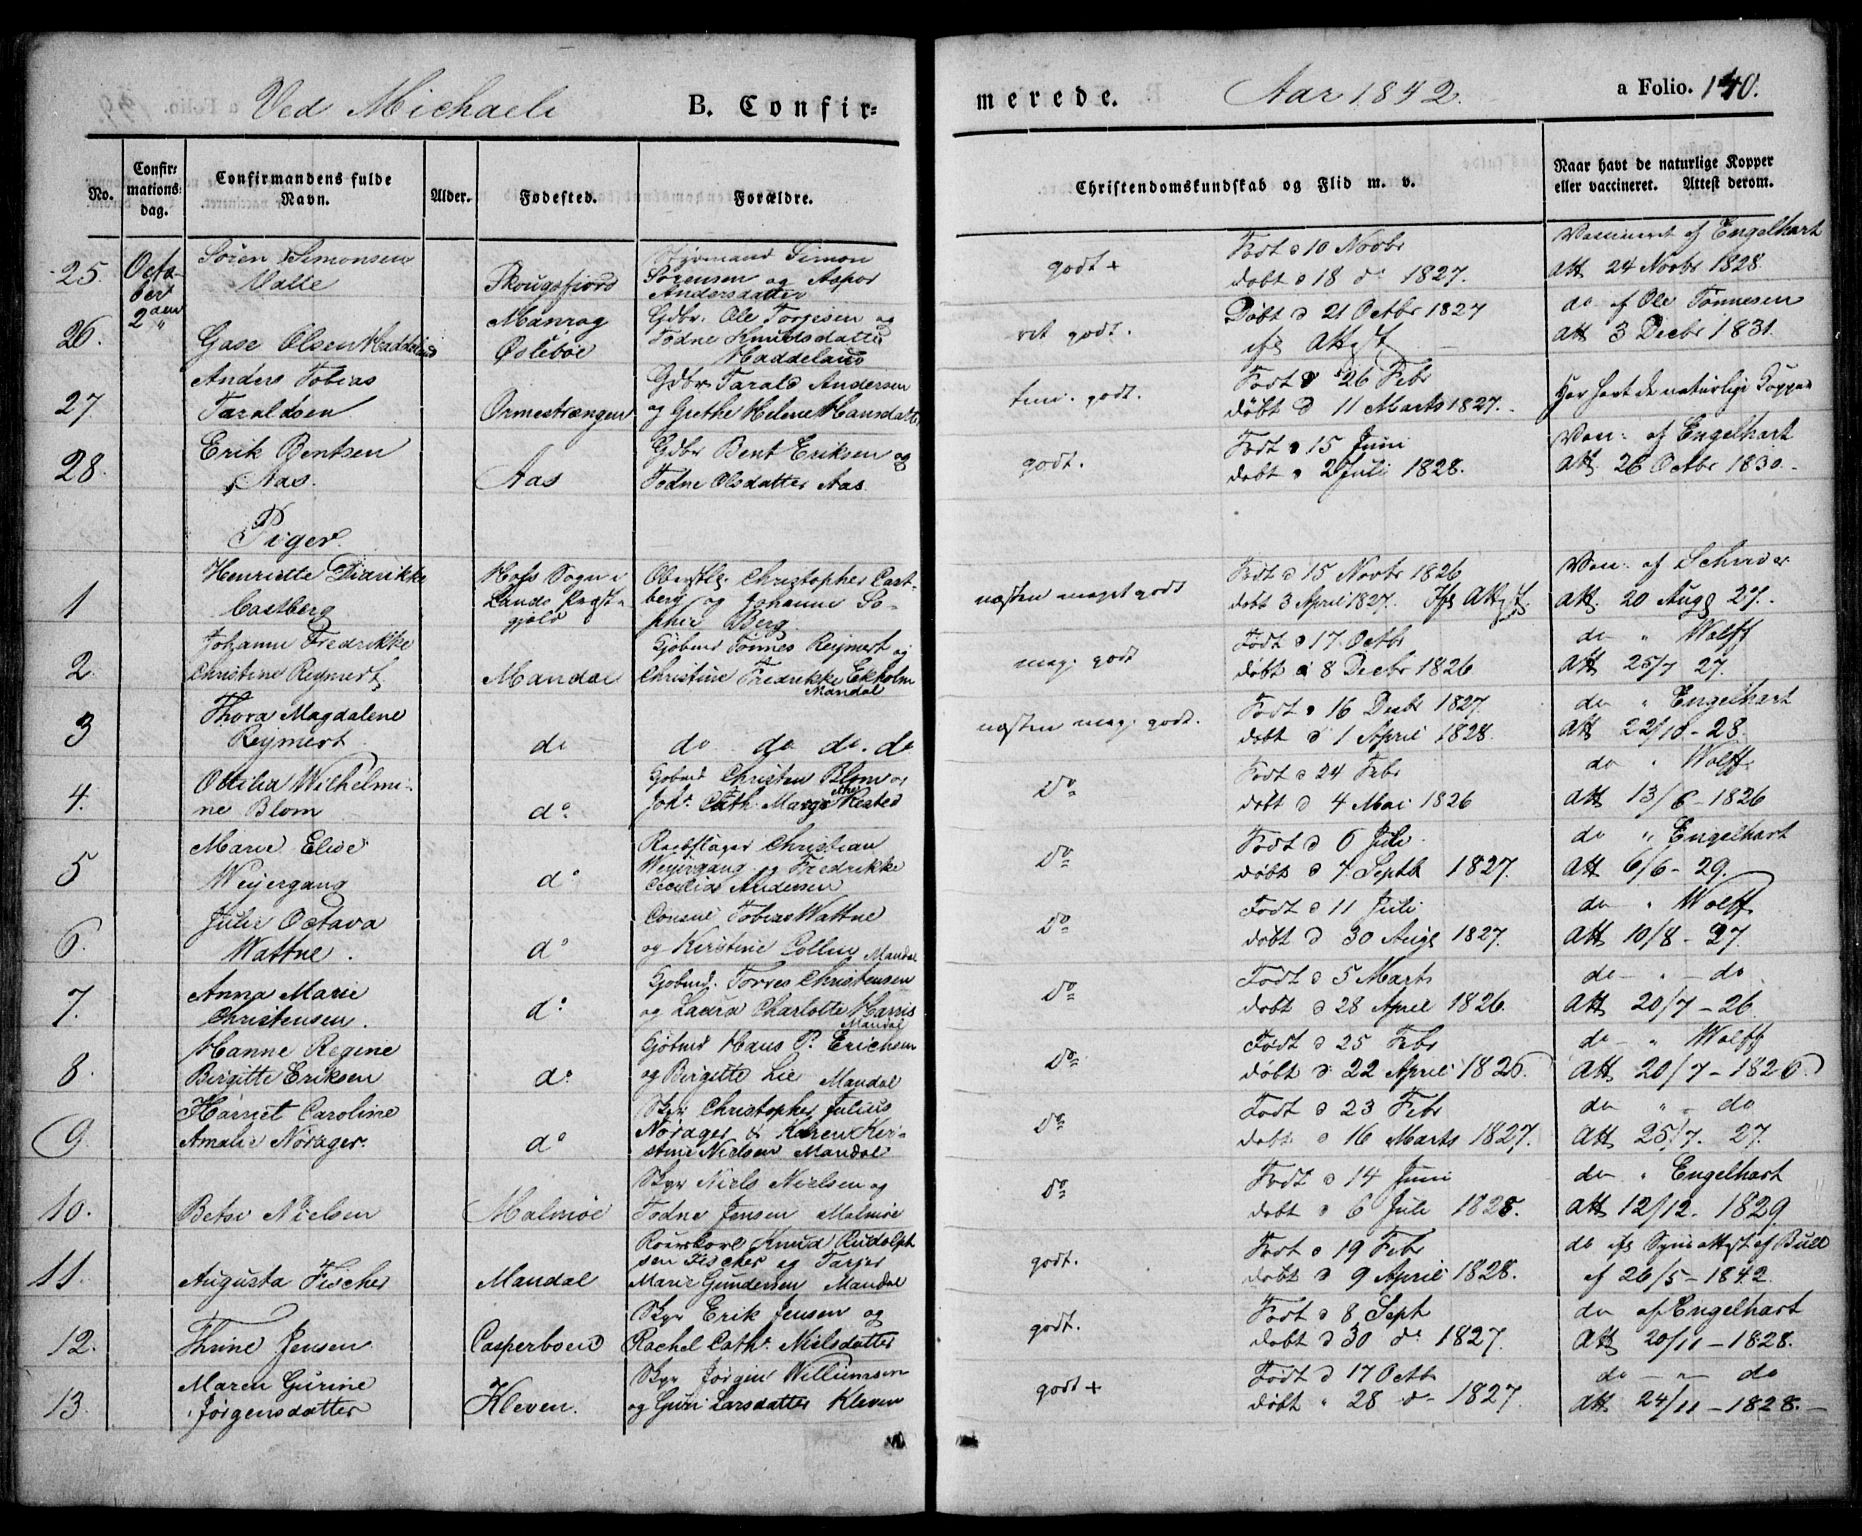 Ved Michaeli B. Confir=
merede. Aar 1842. a Folio. 140.
No. Confir=mations=dag. Confirmandens fulde Navn. Alder. Fødested. Forældre. Christendomskundskab og Flid m. v. Naar havt de naturlige Kopper eller vaccineret. Attest derom.
25. October 2den
Søren Simonsen
Valle
Skougsfjord
Styrmand Simon
Sørensen og Aspor
Andersdatter
godt +
Født d 10 Novbr
døbt d 18 do 1827.
Vaccineret af Engelhart
Att 24 Novbr 1828.
26.
Gase Olsen Haddeland
Manrag
Øslebøe
Gdbr. Ole Torjesen og
Todne Knudsdatter
Haddeland
ret godt.
Døbt d 21 Octbr 1827
efs Attest
do af Ole Tønnesen
Att 3 Decbr 1831.
27
Anders Tobias
Taraldsen
Ormestrængen
Gdbr Tarald Andersen
og Grethe Helene Hansdatter
tem. godt.
Født d 26 Febr
døbt d 11 Marts 1827.
Har havt de naturlige Kopper
28.
Erik Bentsen
Aas.
Aas
Gdbr Bent Eriksen og
Todne Olsdatter Aas.
godt.
Født d 15 Juni
døbt d 2 Juli 1828.
Vac: af Engelhart
Att. 26 Octbr 1830.
Piger.
1
Henriette Didrikke
Castberg
Hofs Sogn i
Lands Præst=
gjeld
Oberstl: Christopher Cast=
berg og Johanne So=
phie Berg.
næsten meget godt
Født d 15 Novbr 1826
døbt 3 April 1827. Efs Attest
Vac: af
Att. 20 Aug 27.
2.
Johanne Fredrikke
Christine Reymert
Mandal
Gjobmd Tønnes Reymert og
Christine Fredrikke Ekholm
Mandal
meg. godt
Født d 17 Octbr
døbt d 8 Decbr 1826
do " Wolff
Att 25/7 27.
3
Thora Magdalene
Reymert
do
do. do do. do
næsten meg. godt.
Født d 16 Decbr 1827.
døbt d 1 April 1828.
do " Engelhart
Att 22/10 - 28.
4.
Ottilia Wilhelmi=
ne Blom
do.
Gjobmd Christen Blom og
Johe Cath. Margethe Kested
do
Født d 24 Febr
døbt d 4 Mai 1826
do " Wolff.
Att 13/6 - 1826
5
Marie Elise
Weyergang
do
Reebslager Christian
Weyergang og Fredrikke
Cecilia Andersen
do
Født d 6 Juli
døbt d 7 Septb 1827.
do " Engelhart
Att 6/6 - 29.
6.
Julie Octava
Wattne.
do
Consul Tobias Wattne
og Kirstine Collin Mandal
do
Født d 11 Juli
døbt d 30 Aug 1827.
do " Wolff
Att 10/8 - 27.
7.
Anna Marie
Christensen.
do.
Gjobmd. Torres Christensen
og Laura Charlotte Harris
Mandal
do
Født d 5 Marts
døbt d 28 April 1826.
do - " - do
Att 20/7 - 26.
8.
Hanne Regine
Birgitte Eriksen
do.
Gjobmd Hans P. Erichsen
og Birgitte Lie Mandal
do
Født d 25 Febr
døbt d 22 April 1826.
do - " Wolff
Att 20/7 - 1826.
9.
Harriet Caroline
Amalie Nørager.
do
Skpr Christopher Julius
Nørager & Karen Kir=
stine Nielsen Mandal
do
Født d 23 Febr
døbt d 16 Marts 1827.
do " - do
Att 25/7. 27.
10.
Betse Nielsen
Malmøe
Skpr Niels Nielsen og
Todne Jensen Malmøe
do
Født d 14 Juni
døbt d 6 Juli 1828.
do " Engelhart
Att 12/12. 1829.
11.
Augusta Fischer
Mandal
Knud Rudolph
sen Fischer og Tarjer
Marie Gundersen Mandal
godt.
Født d 19 Febr
døbt d 9 April 1828.
do efs Syns attest af Bull
af 26/5 - 1842.
12.
Thrine Jensen
Casperboen
Skpr Erik Jensen og
Rachel Cathe Nielsdatter
godt.
Født d 8 Sept
døbt d 30 do 1827.
do af Engelhart
Att 20/11 - 1828.
13.
Maren Gurine
Jørgensdatter
Kleven.
Skpr Jørgen Willumsen
og Guri Larsdatter Kleven
godt +
Født d 17 Octb
døbt " 28 do 1827.
do - " - do
Att 24/11 - 1828. -